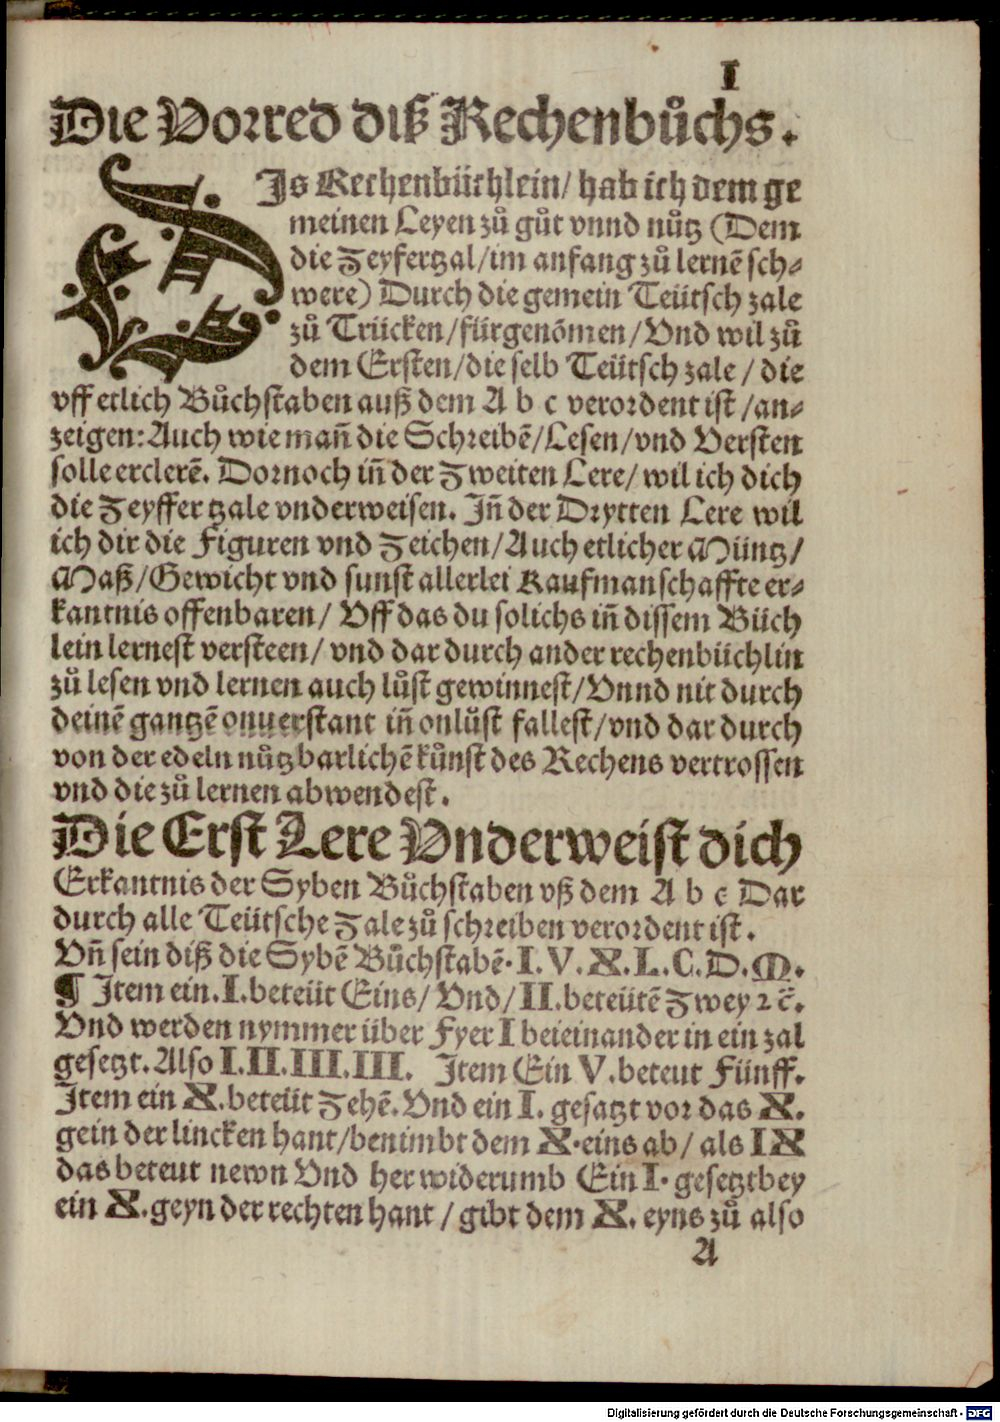 I
Die Vorred diß Rechenbůchs.
DJs Rechenbüchlein/ hab ich dem ge
meinen Leyen zů gůt vnnd nůtz (Dem
die Zeyfertzal/im anfang zů lernē sch⸗
were) Durch die gemein Teütsch zale
zů Trücken/fürgenōmen/Vnd wil zů
dem Ersten/die selb Teütsch zale / die
vff etlich Bůchstaben auß dem A b c verordent ist /an⸗
zeigen: Auch wie mañ die Schreibē/Lesen/vnd Versten
solle erclerē. Dornoch iñ der Zweiten Lere/ wil ich dich
die Zeyffer tzale vnderweisen. Jñ der Drytten Lere wil
ich dir die Figuren vnd Zeichen/Auch etlicher Müntz/
Maß/Gewicht vnd sunst allerlei Kaufmanschaffte er⸗
kantnis offenbaren/ Vff das du solichs iñ dissem Büch
lein lernest versteen/ vnd dar durch ander rechenbüchlin
zů lesen vnd lernen auch lůst gewinnest/Vnnd nit durch
deinē gantzē onuerstant iñ onlůst fallest/vnd dar durch
von der edeln nůtzbarlichē kůnst des Rechens vertrossen
vnd die zů lernen abwendest.
Die Erst Lere Vnderweist dich
Erkantnis der Syben Bůchstaben vß dem A b c Dar
durch alle Teütsche Zale zů schreiben verordent ist.
Vñ sein diß die Sybē Bůchstabē. I. V. X. L. C. D. M.
¶ Item ein. I. beteüt Eins/ Vnd/ II. beteütē Zwey ⁊c̄.
Vnd werden nymmer über Fyer I beieinander in ein zal
gesetzt. Also I. II. III. IIII. Item Ein V. beteut Fünff.
Item ein X. beteüt Zehē. Vnd ein I. gesatzt vor das X.
gein der lincken hant/benimbt dem X. eins ab/ als IX
das beteut newn Vnd her widerumb Ein I. gesetzt bey
ein X. geyn der rechten hant / gibt dem X. eyns zů also
A
Digitalisierung gefördert durch die Deutsche Forschungsgemeinschaft - DFG